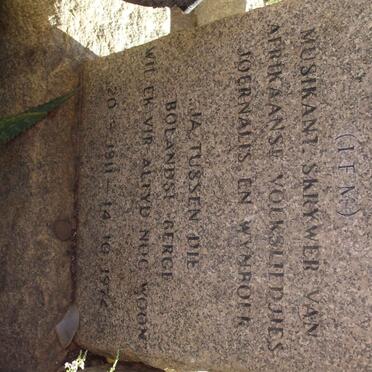 (I.F.N.)
MUSIKANT SKRYWER VAN
AFRIKAANSE VOLKSLIEDJIES
JOERNALIS EN WYNBOER
JA, TUSSEN DIE
BOLANDSE BERGE
WIL EK VIR ALTYD NOG WOON
1911 – 14.10.1974